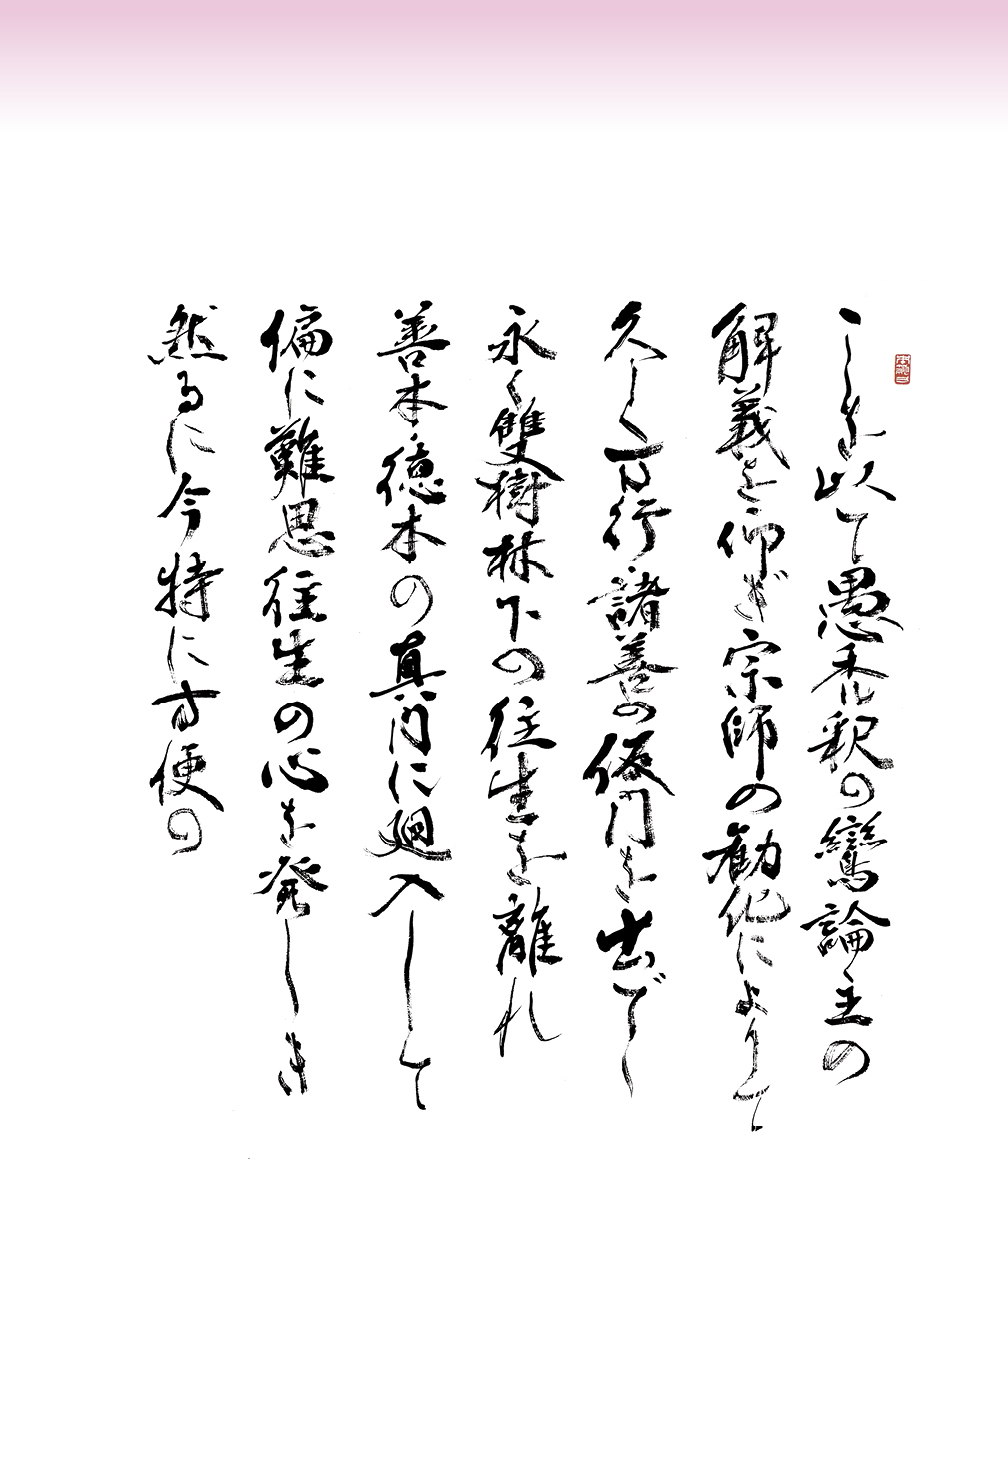 ここを以て愚禿釈の鸞論主の
解義を仰ぎ宗師の勧化によりて
久しく万行諸善の仮門を出でて
永く雙樹林下の往生を離れ
善本徳本の真門に廻入して
偏に難思往生の心を発しき
然るに今特に方便の